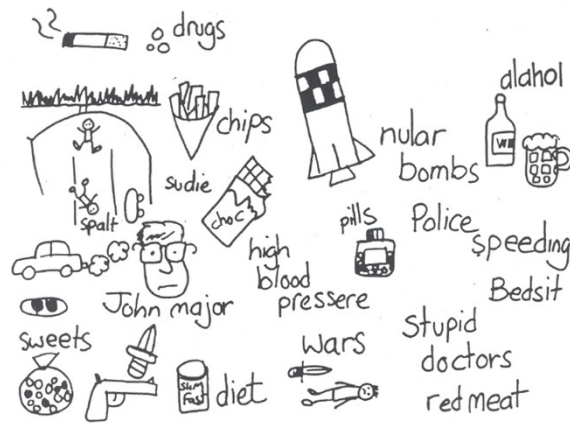 drugs
alahol
chips
nular
bombs
sudie
choc
spalt
pills
Police
speeding
high
blood
pressere
Bedsit
John major
sweets
wars
Stupid
doctors
red meat
SLIM
FAST
diet